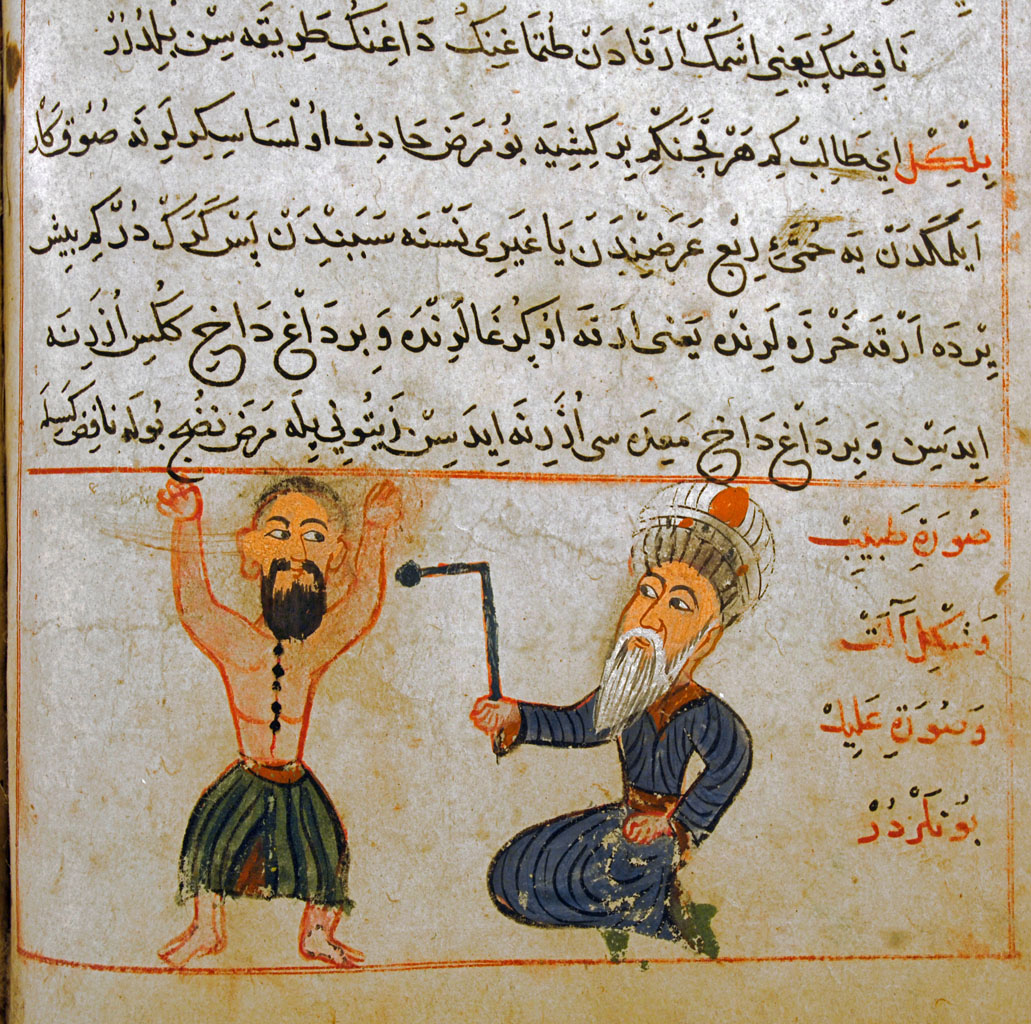 نَافِضِڭ يَعْنِي اُشُمَكْ اَرْقَادَنْ طُتْمَاغِنِڭْ دَاغِنِڭْ طَرِيقَه سِنْ بِلْدُرُرْ
بِلْكِلْ اَيْ طَالِبْ كِمْ هَرْ قَچَنْكِمْ بِرْ كِشِيَه بُو مَرَضْ حَادِثْ اُولْسَا سِكِرْلَرِنَه صُوُقْ كَارْ
اَيْلَمَكْدَنْ يَه حُمَّیِٔ رِبْعْ عَرَضِنْدَنْ يَا غَيْرِي نَسْنَه سَبَبِنْدَنْ پَسْ كَرَكْ دُرْ كِمْ بِيشْ
يِرْدَه اَرْقَه خَرْزَه لَرِنْدَه يَعْنِي اَرْقَه اُوڭُرْغَالَرِنْدَه وَ بِرْ دَاغْ دَاخِي كَكُسْ اُزَرِنَه
اِيدَسِنْ وَ بِرْ دَاغْ دَاخِي مِعْدَه سِي اُزَرِنَه اِيدَسِنْ زَيْتُونِي بِيلَه مَرَضْ نُضْجْ بُولَه نَافِضْ كَسِلَه
صُورَةِ طَبِيبْ
وَ شَكْلِ آلَتْ
وَ صُورَةِ عَلِيلْ
بُونْلَرْدُرْ